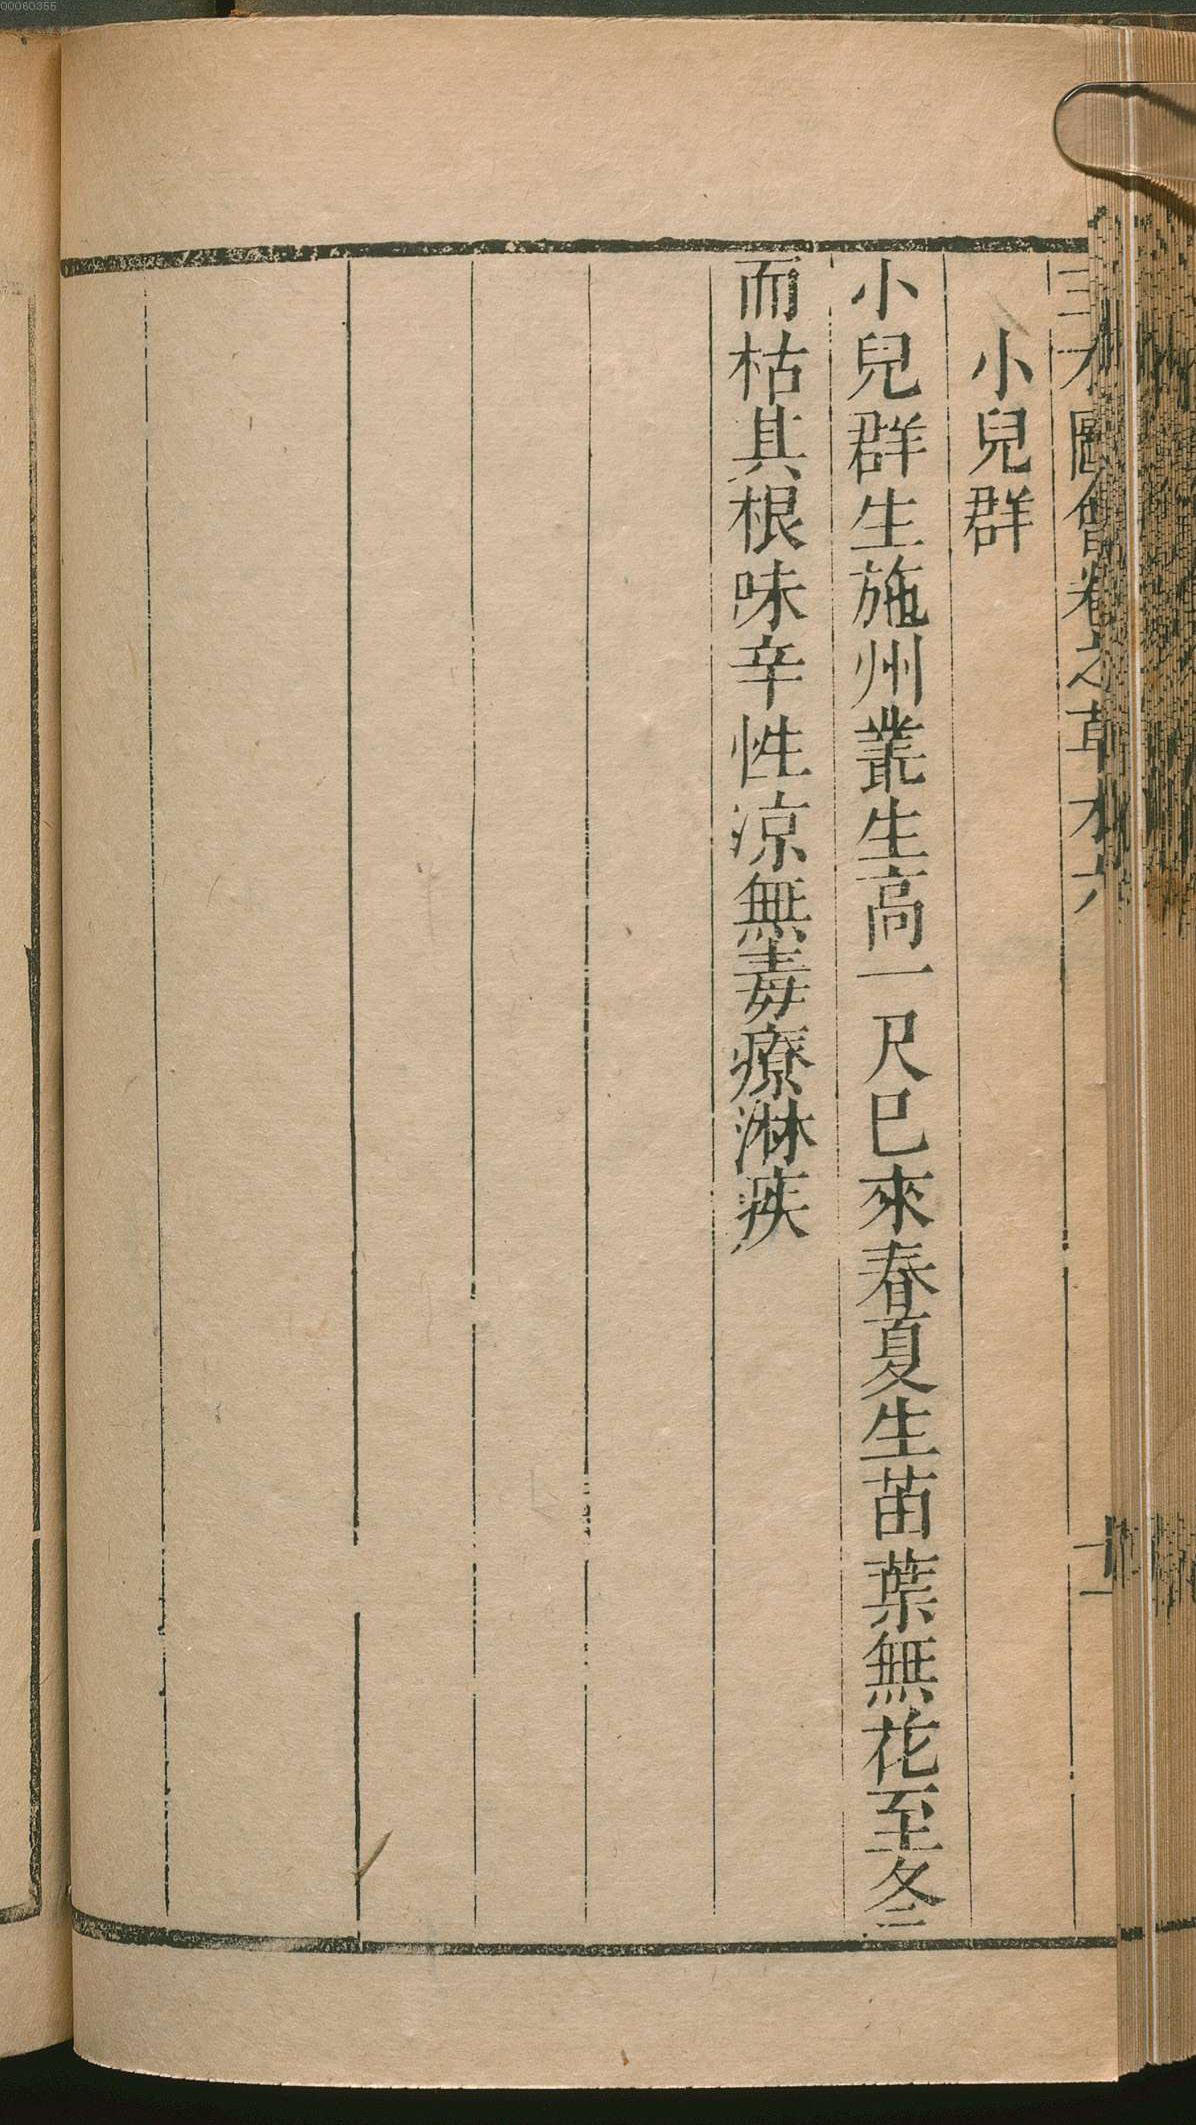 00060355
三才圖會卷之草木六
十一
小兒群
小兒群生施州叢生高一尺巳來春夏生苗葉無花至冬
而枯其根味辛性涼無毒療淋疾